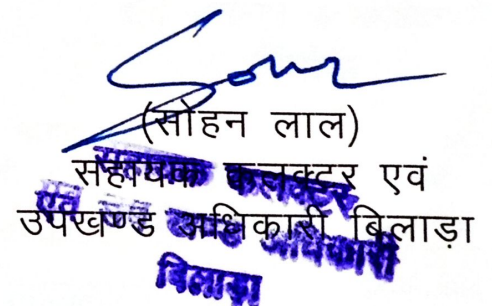 (सोहन लाल)
सहायक कलक्टर एवं
उपखण्ड अधिकारी बिलाड़ा
बिलाड़ा